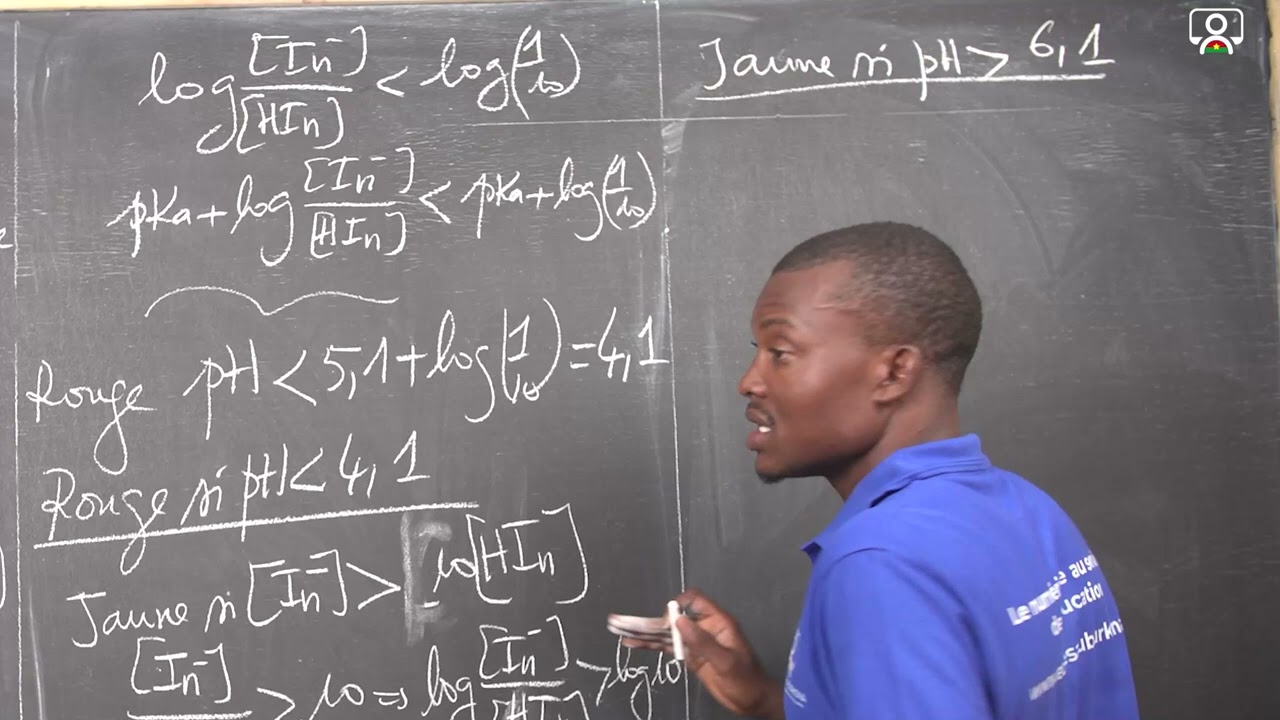 log [In⁻]/[HIn] < log(1/10)
pKa + log [In⁻]/[HIn] < pKa + log(1/10)
Rouge pH < 5,1 + log(1/10) = 4,1
Rouge si pH < 4,1
Jaune si [In⁻] > 10[HIn]
[In⁻] > 10 => log [In⁻]/[HIn] > log 10
Jaune si pH > 6,1
Le numérique au